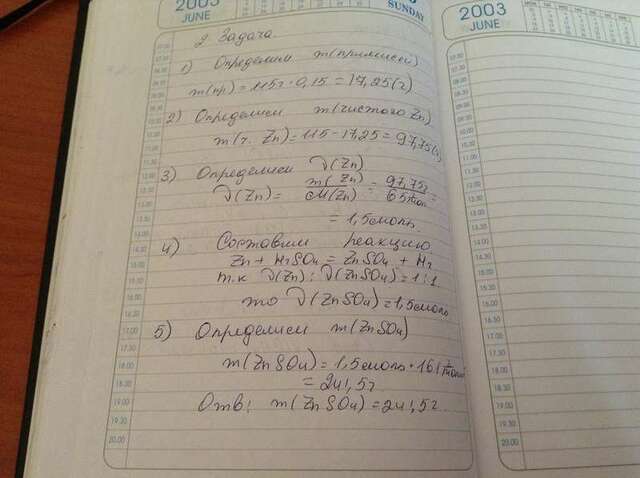 2003
JUNE
SUNDAY
2003
JUNE
2 Задача
1) Определим m(примисей)
m(пр) = 115г · 0,15 = 17,25(г)
2) Определим m(чистого Zn)
m(ч. Zn) = 115 - 17,25 = 97,75(г)
3) Определим ν(Zn)
ν(Zn) = m(Zn)/M(Zn) = 97,75г/65г/моль =
= 1,5моль.
4) Составим реакцию
Zn + H2SO4 = ZnSO4 + H2
т.к ν(Zn) : ν(ZnSO4) = 1:1
то ν(ZnSO4) = 1,5моль
5) Определим m(ZnSO4)
m(ZnSO4) = 1,5моль · 161г/моль
= 241,5г
Отв: m(ZnSO4) = 241,5г.